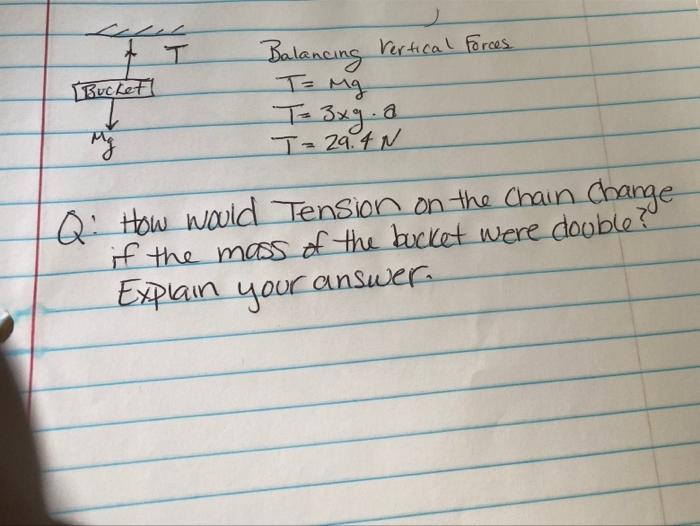 T
Bucket
Mg
Balancing Vertical Forces
T = Mg
T = 3x9.8
T = 29.4 N
Q: How would Tension on the Chain Change
if the mass of the bucket were double?
Explain your answer.